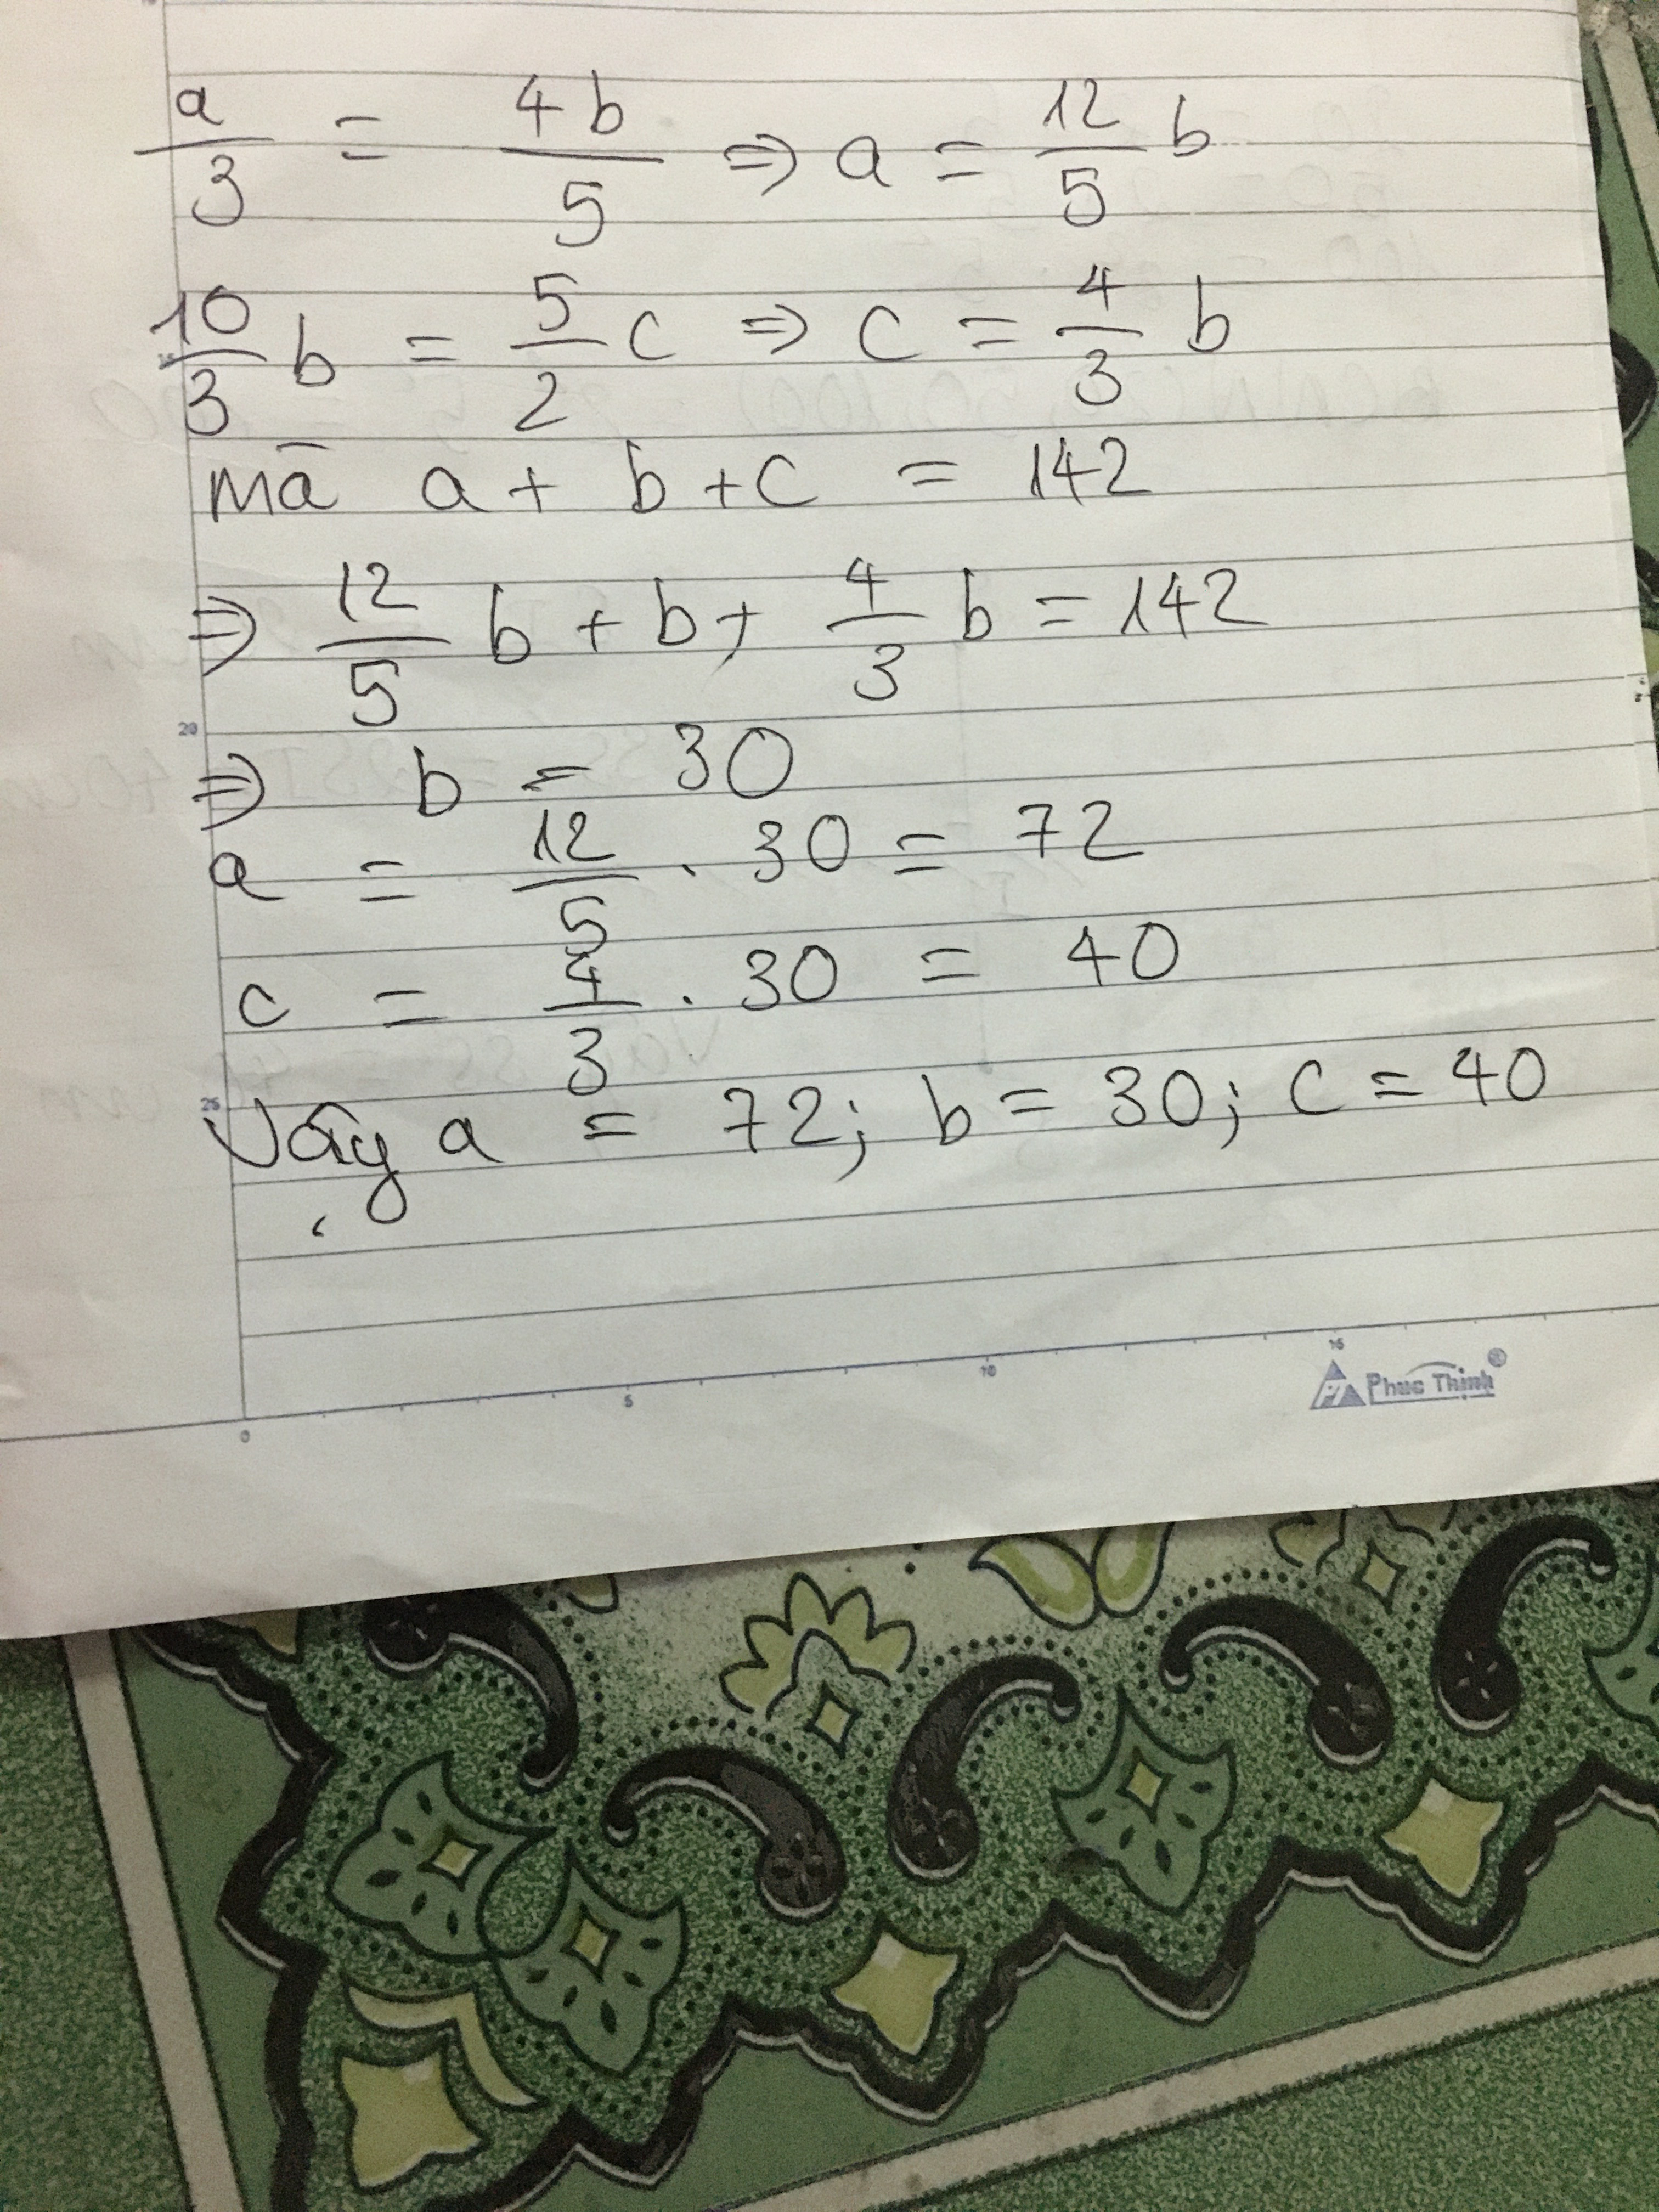 a/3 = 4b/5 ⇒ a = 12/5 b
10/3 b = 5/2 c ⇒ c = 4/3 b
mà a + b + c = 142
⇒ 12/5 b + b + 4/3 b = 142
20
⇒ b = 30
a = 12/5 . 30 = 72
c = 4/3 . 30 = 40
25
Vậy a = 72; b = 30; c = 40
0 5 10 15
Phuc Thinh ®